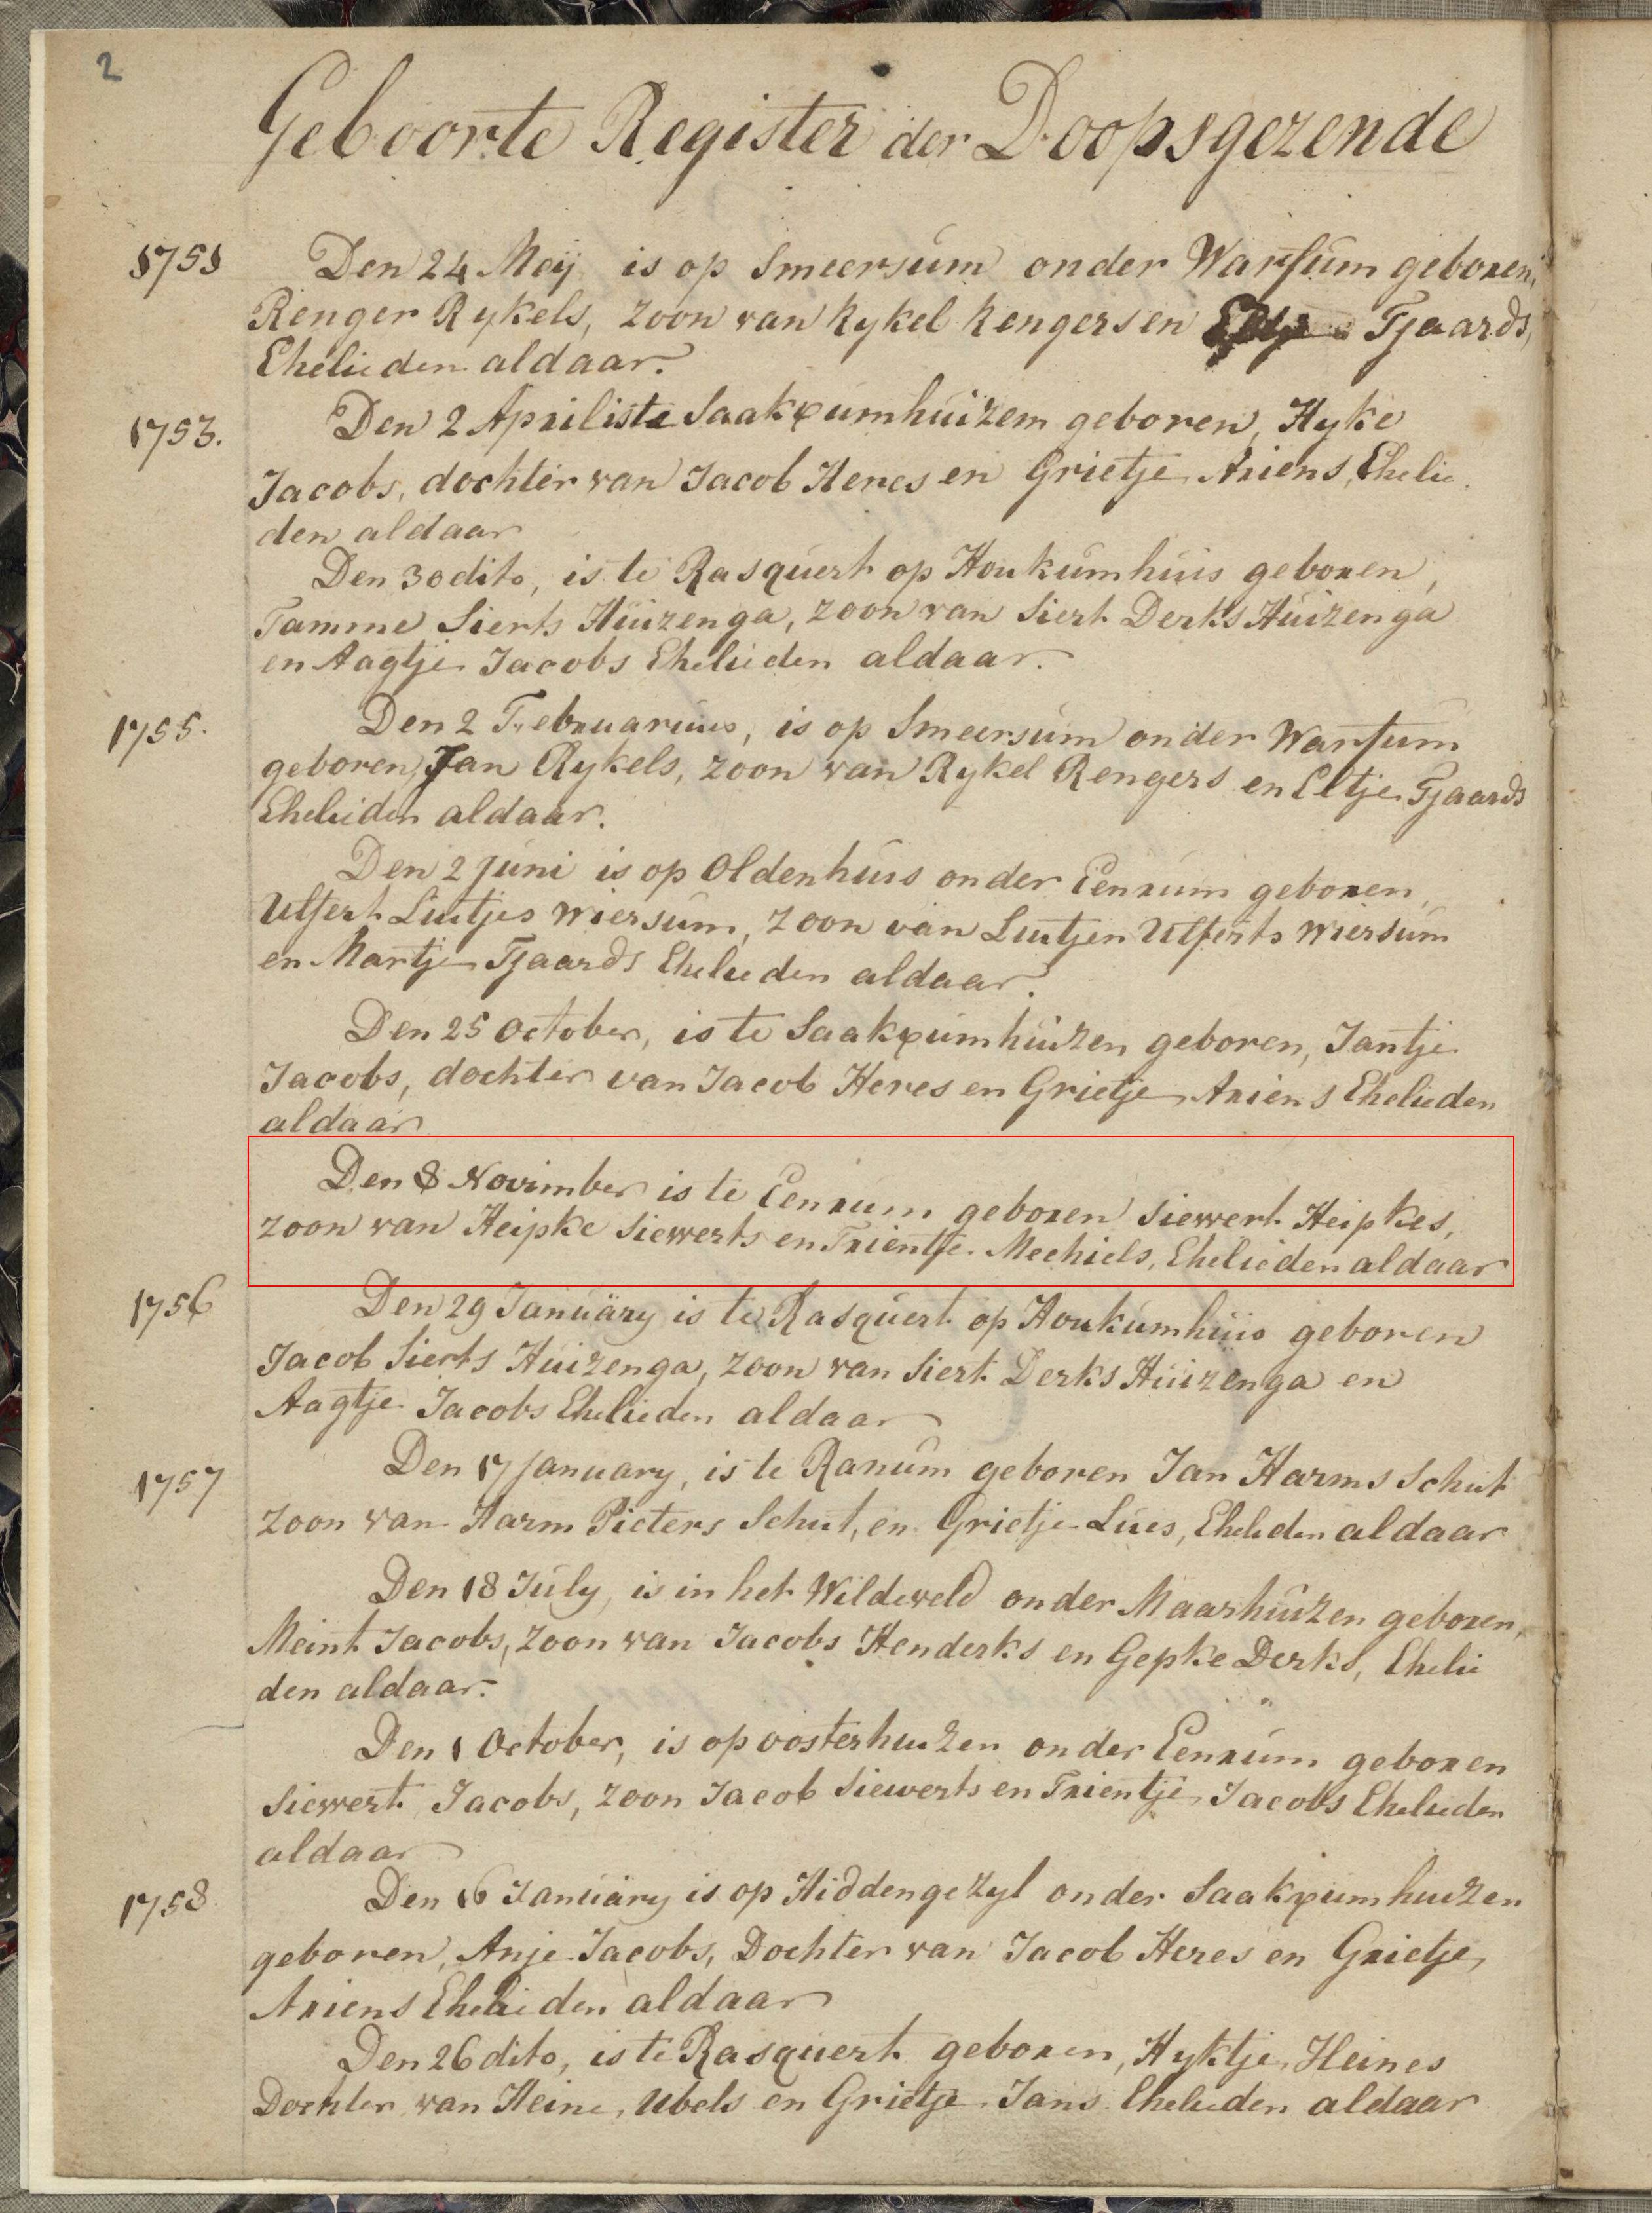 2
Geboorte Register der Doopsgezende
1751 Den 24 Meij is op Smeersum onder Warfum geboren,
Renger Rykels, zoon van Rykel Rengers en Eltje Tjaards,
Ehelieden aldaar.
1753. Den 2 April is te Saakxumhuizem geboren, Hyke
Jacobs, dochter van Jacob Heres en Grietje Ariens, Ehelie
den aldaar
Den 30 dito, is te Rasquert op Houkumhuis geboren,
Tamme Sierts Huizenga, zoon van Siert Derks Huizenga
en Aagtje Jacobs Ehelieden aldaar.
1755. Den 2 Februarius, is op Smeersum onder Warfum
geboren, Jan Rykels, zoon van Rykel Rengers en Eltje Tjaards
Ehelieden aldaar.
Den 2 Juni is op Oldenhuis onder Eenrum geboren,
Ulfert Luitjes Wiersum, zoon van Luitjen Ulferts Wiersum
en Martje Tjaards Ehelieden aldaar.
Den 25 October, is te Saakxumhuizen geboren, Jantje
Jacobs, dochter van Jacob Heres en Grietje Ariens Ehelieden
aldaar
Den 8 Novimber is te Eenrum geboren Siewert Heipkes,
zoon van Heipke Siewerts en Trientje Mechiels, Ehelieden aldaar
1756 Den 29 Januäry is te Rasquert op Houkumhuis geboren
Jacob Sierts Huizenga, zoon van Siert Derks Huizenga en
Aagtje Jacobs Ehelieden aldaar
1757 Den 17 January, is te Ranum geboren Jan Harms Schut
zoon van Harm Pieters Schut, en Grietje Lues, Ehelieden aldaar
Den 18 July, is in het Wildeveld onder Maarhuizen geboren,
Meint Jacobs, zoon van Jacobs Henderks en Gepke Derks, Ehelie
den aldaar.
Den 1 October, is op oosterhuizen onder Eenrum geboren
Siewert Jacobs, zoon Jacob Siewerts en Trientje Jacobs Ehelieden
aldaar
1758 Den 16 Januäry is op Hiddengezyl onder Saakxumhuizen
geboren, Anje Jacobs, Dochter van Jacob Heres en Grietje,
Ariens Ehelieden aldaar
Den 26 dito, is te Rasquert geboren, Hyktje, Heines
Dochter van Heine, Ubels en Grietje Jans Ehelieden aldaar